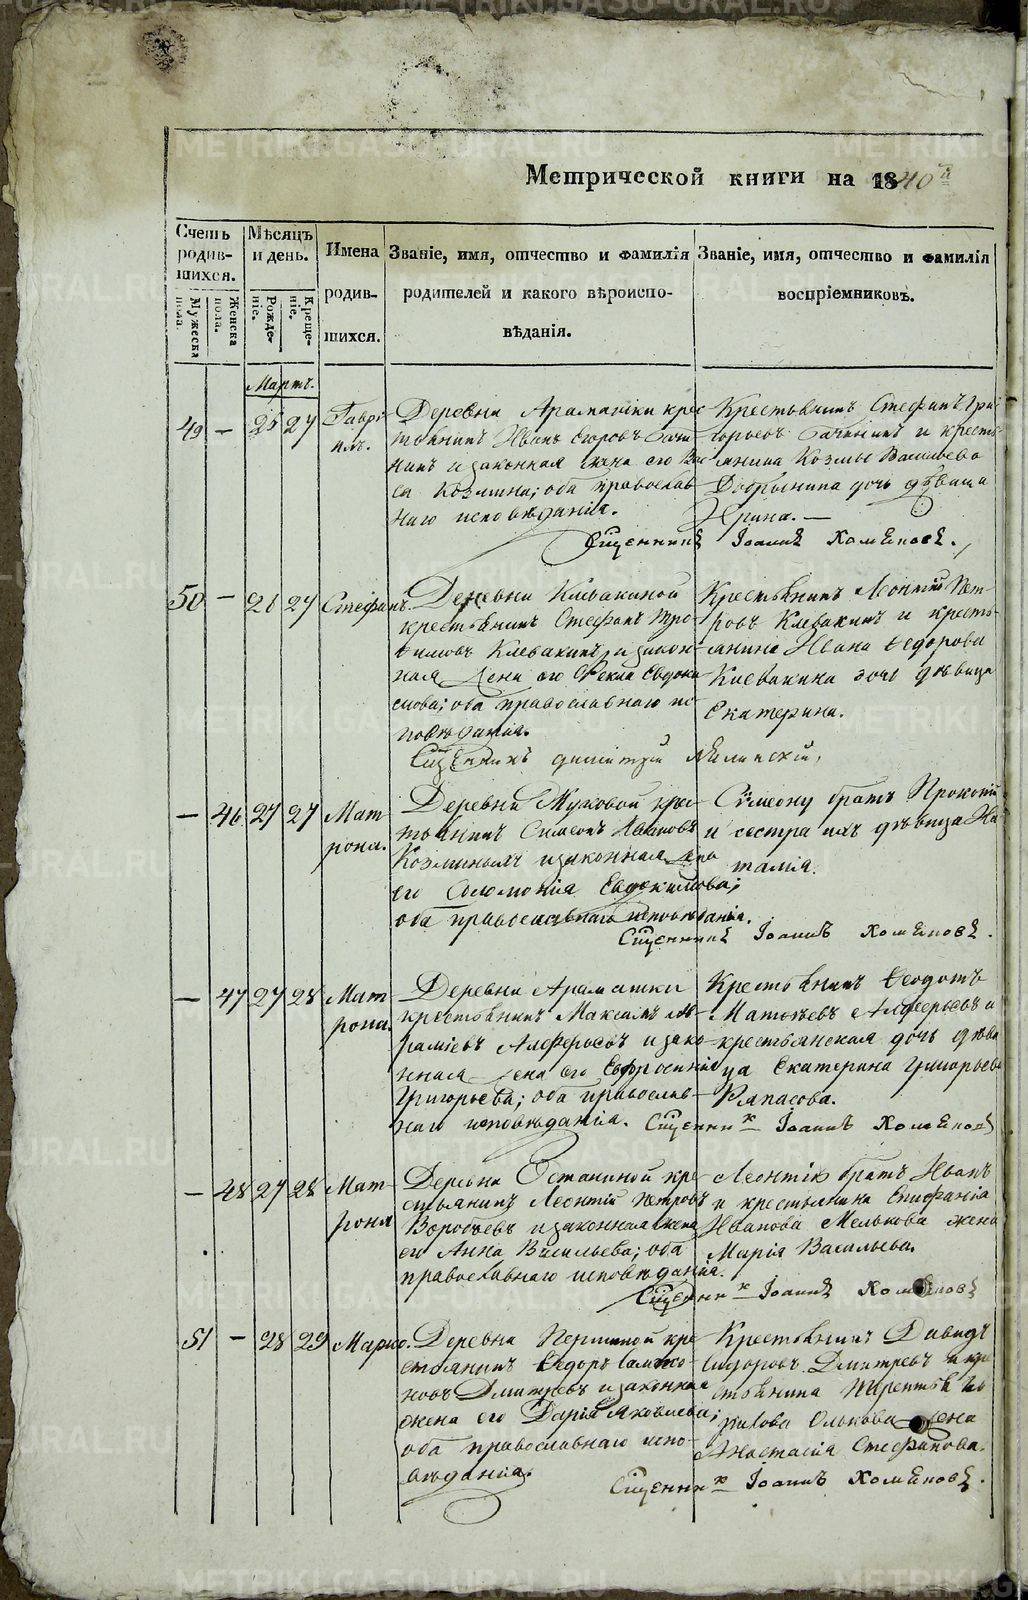 METRIKI.GASO-URAL.RU
Метрической книги на 1840й
Счетъ родив-шихся.
Мужеска пола.
Женска пола.
Мѣсяцъ и день.
Рожде-ніе.
Креще-ніе.
Имена родив-шихся.
Званіе, имя, отчество и фамилія
родителей и какого вѣроиспо-
вѣданія.
Званіе, имя, отчество и фамилія
воспріемниковъ.
Мартъ.
49 — 25 27 Гаврі-
илъ.
Деревни Арамашки крес
тьянинъ Иванъ Егоровъ
нинъ и законная жена его Ва
са Козмина; оба православ
наго исповѣданія.
Крестьянинъ Стефанъ Гри
горьевъ и кресть
янина Козмы Васильева
Добрынина дочь дѣвица
Ирина. —
Сщенникъ Іоаннъ Хомяковъ.
50 — 26 27 Стефанъ.
Деревни Клевакиной
крестьянинъ Стефанъ Тро-
ѳимовъ Клевакинъ, и закон-
ная жена его Ѳекла Евдоки
мова; оба православнаго ис-
повѣданія.
Крестьянинъ Леонтій Пет-
ровъ Клевакинъ и кресть-
янина Ивана Ѳедорова
Клевакина дочь дѣвица
Екатерина.
Сщенникъ Димитрій
— 46 27 27 Мат
рона.
Деревни Муховой крес-
тьянинъ Симеонъ Ивановъ
Козминыхъ и законная жена
его Соломонія Евдокимова;
оба православнаго исповѣданія.
Сѵмеону братъ Прокопій
и сестра ихъ дѣвица На
талія.
Сщенникъ Іоаннъ Хомяковъ.
— 47 27 28 Мат
рона.
Деревни Арамашки
крестьянинъ Максимъ
Алферовъ и зако-
нная жена его Евфросинія
Григорьева; оба православ-
наго исповѣданія.
Крестьянинъ Ѳеодотъ
Матѳѣевъ Алферьевъ и
крестьянская дочь дѣви
ца Екатерина Григорьева
Сщенникъ Іоаннъ Хомяковъ
— 48 27 28 Мат-
рона
Деревни Останиной кре-
стьянинъ Леонтій Петровъ
Воробьевъ и законная жена
его Анна Васильева; оба
православнаго исповѣданія.
Леонтію братъ Иванъ
и крестьянина Епифанія
Иванова Мелькова жена
Марія Васильева.
Сщенникъ Іоаннъ Хомяковъ
51 — 28 29 Марко.
Деревни Першиной кре
стьянинъ Ѳедоръ
новъ Дмитревъ и законная
жена его Дарія Яковлева;
оба православнаго испо-
вѣданія.
Крестьянинъ Давидъ
Сидоровъ Дмитревъ и кре
стьянина Терентья
Олькова жена
Анастасія Стефанова.
Сщенникъ Іоаннъ Хомяковъ.